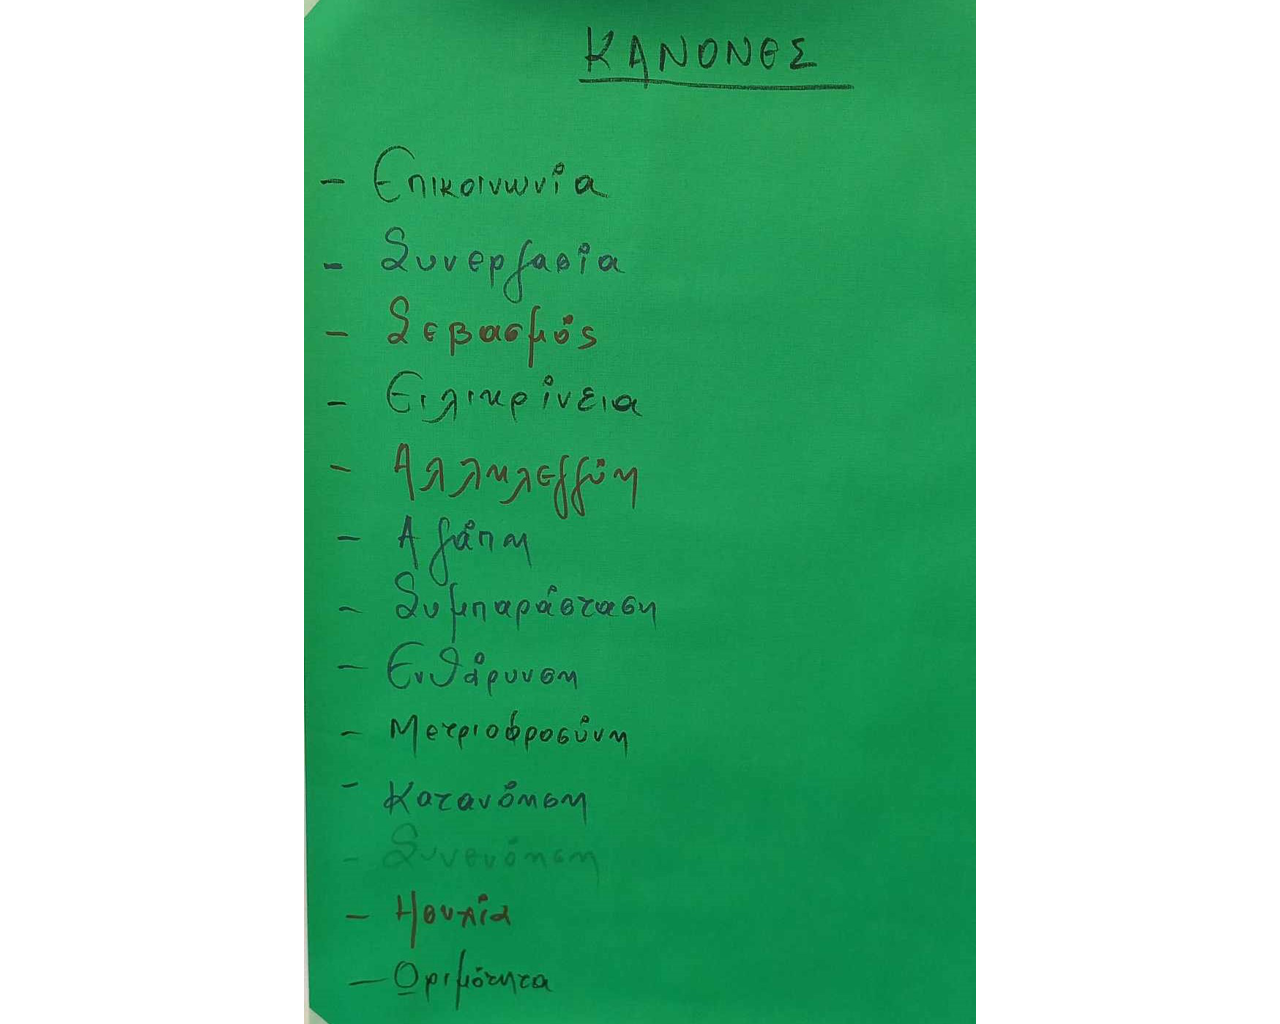 ΚΑΝΟΝΕΣ
- Επικοινωνία
- Συνεργασία
- Σεβασμός
- Ειλικρίνεια
- Αλληλεγγύη
- Αγάπη
- Συμπαράσταση
- Ενθάρυνση
- Μετριοφροσύνη
- Κατανόηση
- Συνενόηση
- Ησυχία
- Ωριμότητα